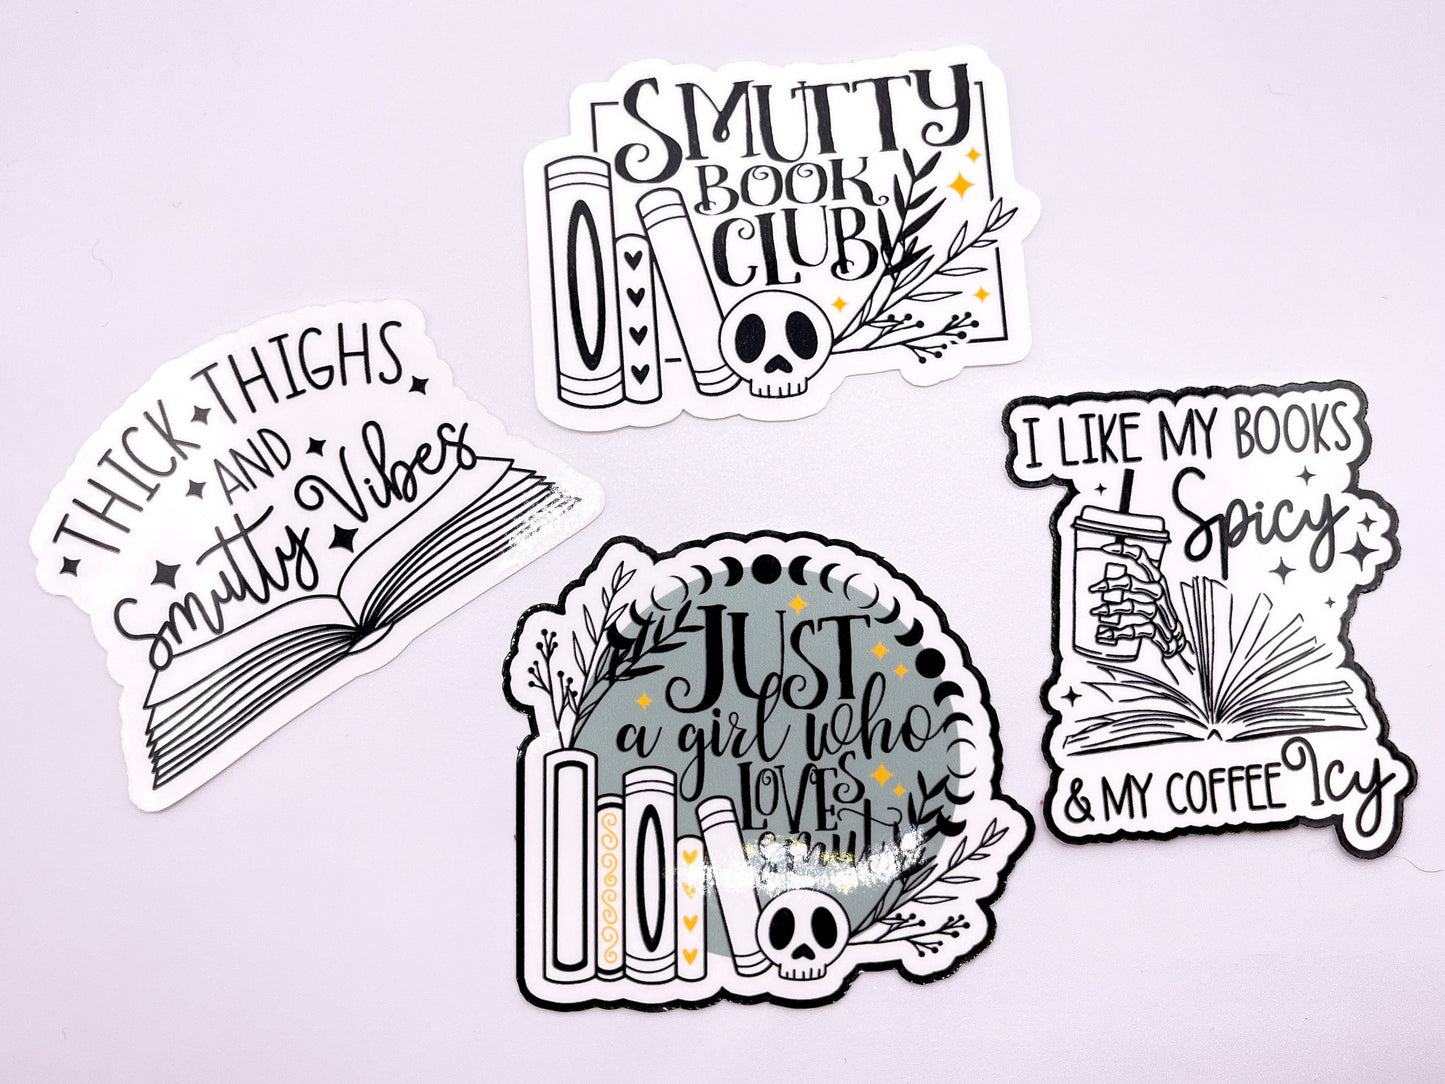 SMUTTY
BOOK
CLUB
THICK THIGHS
AND
Smutty Vibes
I LIKE MY BOOKS
Spicy
& MY COFFEE Icy
JUST
a girl who
LOVES
smut